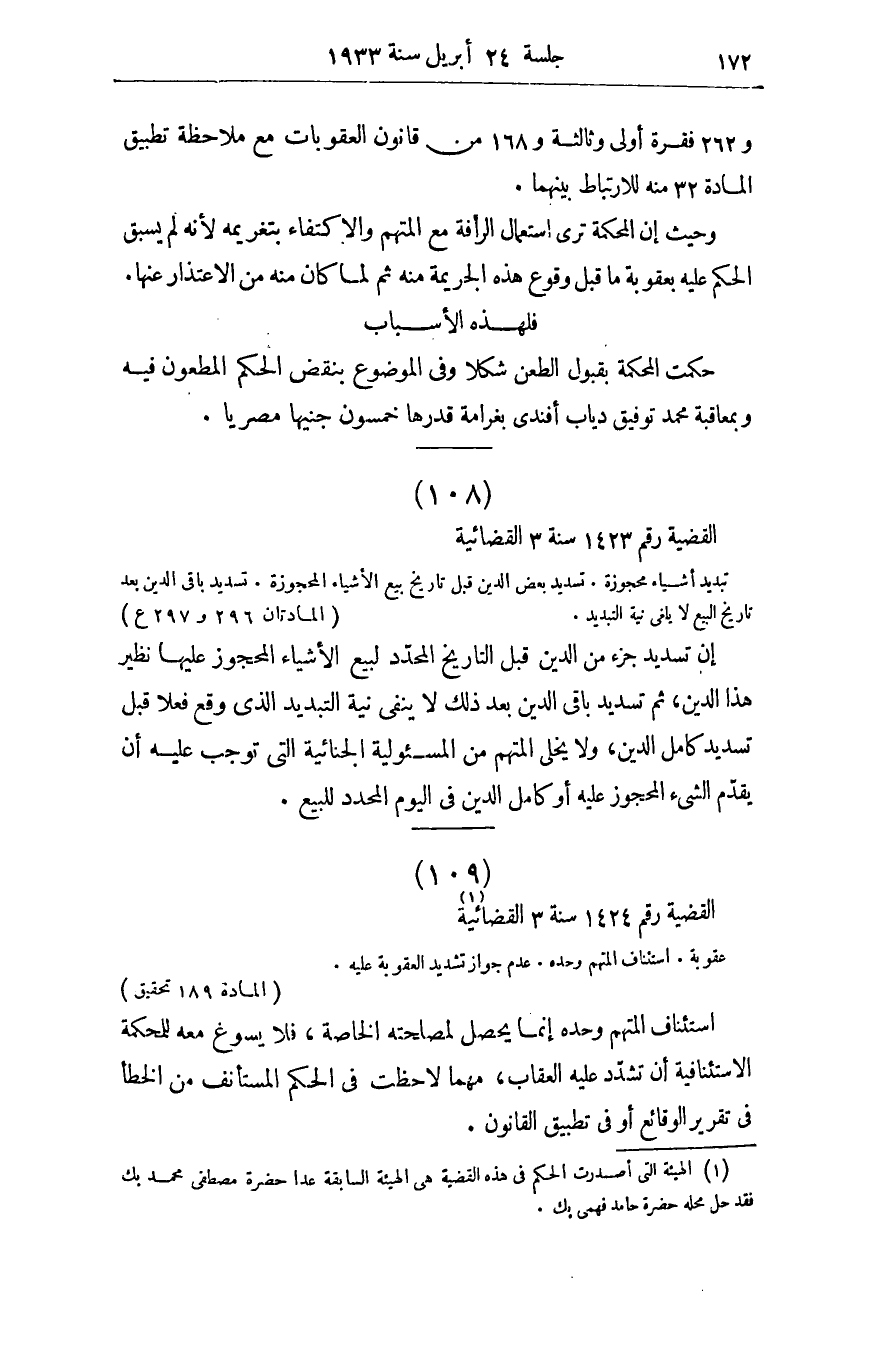 ١٧٢ جلسة ٢٤ أبريل سنة ١٩٣٣
و ٢٦٢ فقرة أولى وثالثة و ١٦٨ من قانون العقوبات مع ملاحظة تطبيق
المادة ٣٢ منه للارتباط بينهما .
وحيث إن المحكمة ترى استعمال الرأفة مع المتهم والاكتفاء بتغريمه لأنه لم يسبق
الحكم عليه بعقوبة ما قبل وقوع هذه الجريمة منه ثم لما كان منه من الاعتذار عنها.
فلهذه الأسباب
حكمت المحكمة بقبول الطعن شكلا وفى الموضوع بنقض الحكم المطعون فيه
وبمعاقبة محمد توفيق دياب أفندى بغرامة قدرها خمسون جنيها مصريا .
(١٠٨)
القضية رقم ١٤٢٣ سنة ٣ القضائية
تبديد أشياء محجوزة . تسديد بعض الدين قبل تاريخ بيع الأشياء المحجوزة . تسديد باقى الدين بعد
تاريخ البيع لا ينافى نية التبديد . (المادتان ٢٩٦ و ٢٩٧ ع)
إن تسديد جزء من الدين قبل التاريخ المحدّد لبيع الأشياء المحجوز عليها نظير
هذا الدين، ثم تسديد باقى الدين بعد ذلك لا ينفى نية التبديد الذى وقع فعلا قبل
تسديد كامل الدين، ولا يخلى المتهم من المسئولية الجنائية التى توجب عليه أن
يقدّم الشىء المحجوز عليه أو كامل الدين فى اليوم المحدد للبيع .
(١٠٩)
القضية رقم ١٤٢٤ سنة ٣ القضائية (١)
عقوبة . استئناف المتهم وحده . عدم جواز تشديد العقوبة عليه .
(المادة ١٨٩ تحقيق)
استئناف المتهم وحده إنما يحصل لمصلحته الخاصة ، فلا يسوغ معه للمحكمة
الاستئنافية أن تشدّد عليه العقاب، مهما لاحظت فى الحكم المستأنف من الخطأ
فى تقرير الوقائع أو فى تطبيق القانون .
(١) الهيئة التى أصدرت الحكم فى هذه القضية هى الهيئة السابقة عدا حضرة مصطفى محمد بك
فقد حل محله حضرة حامد فهمى بك .